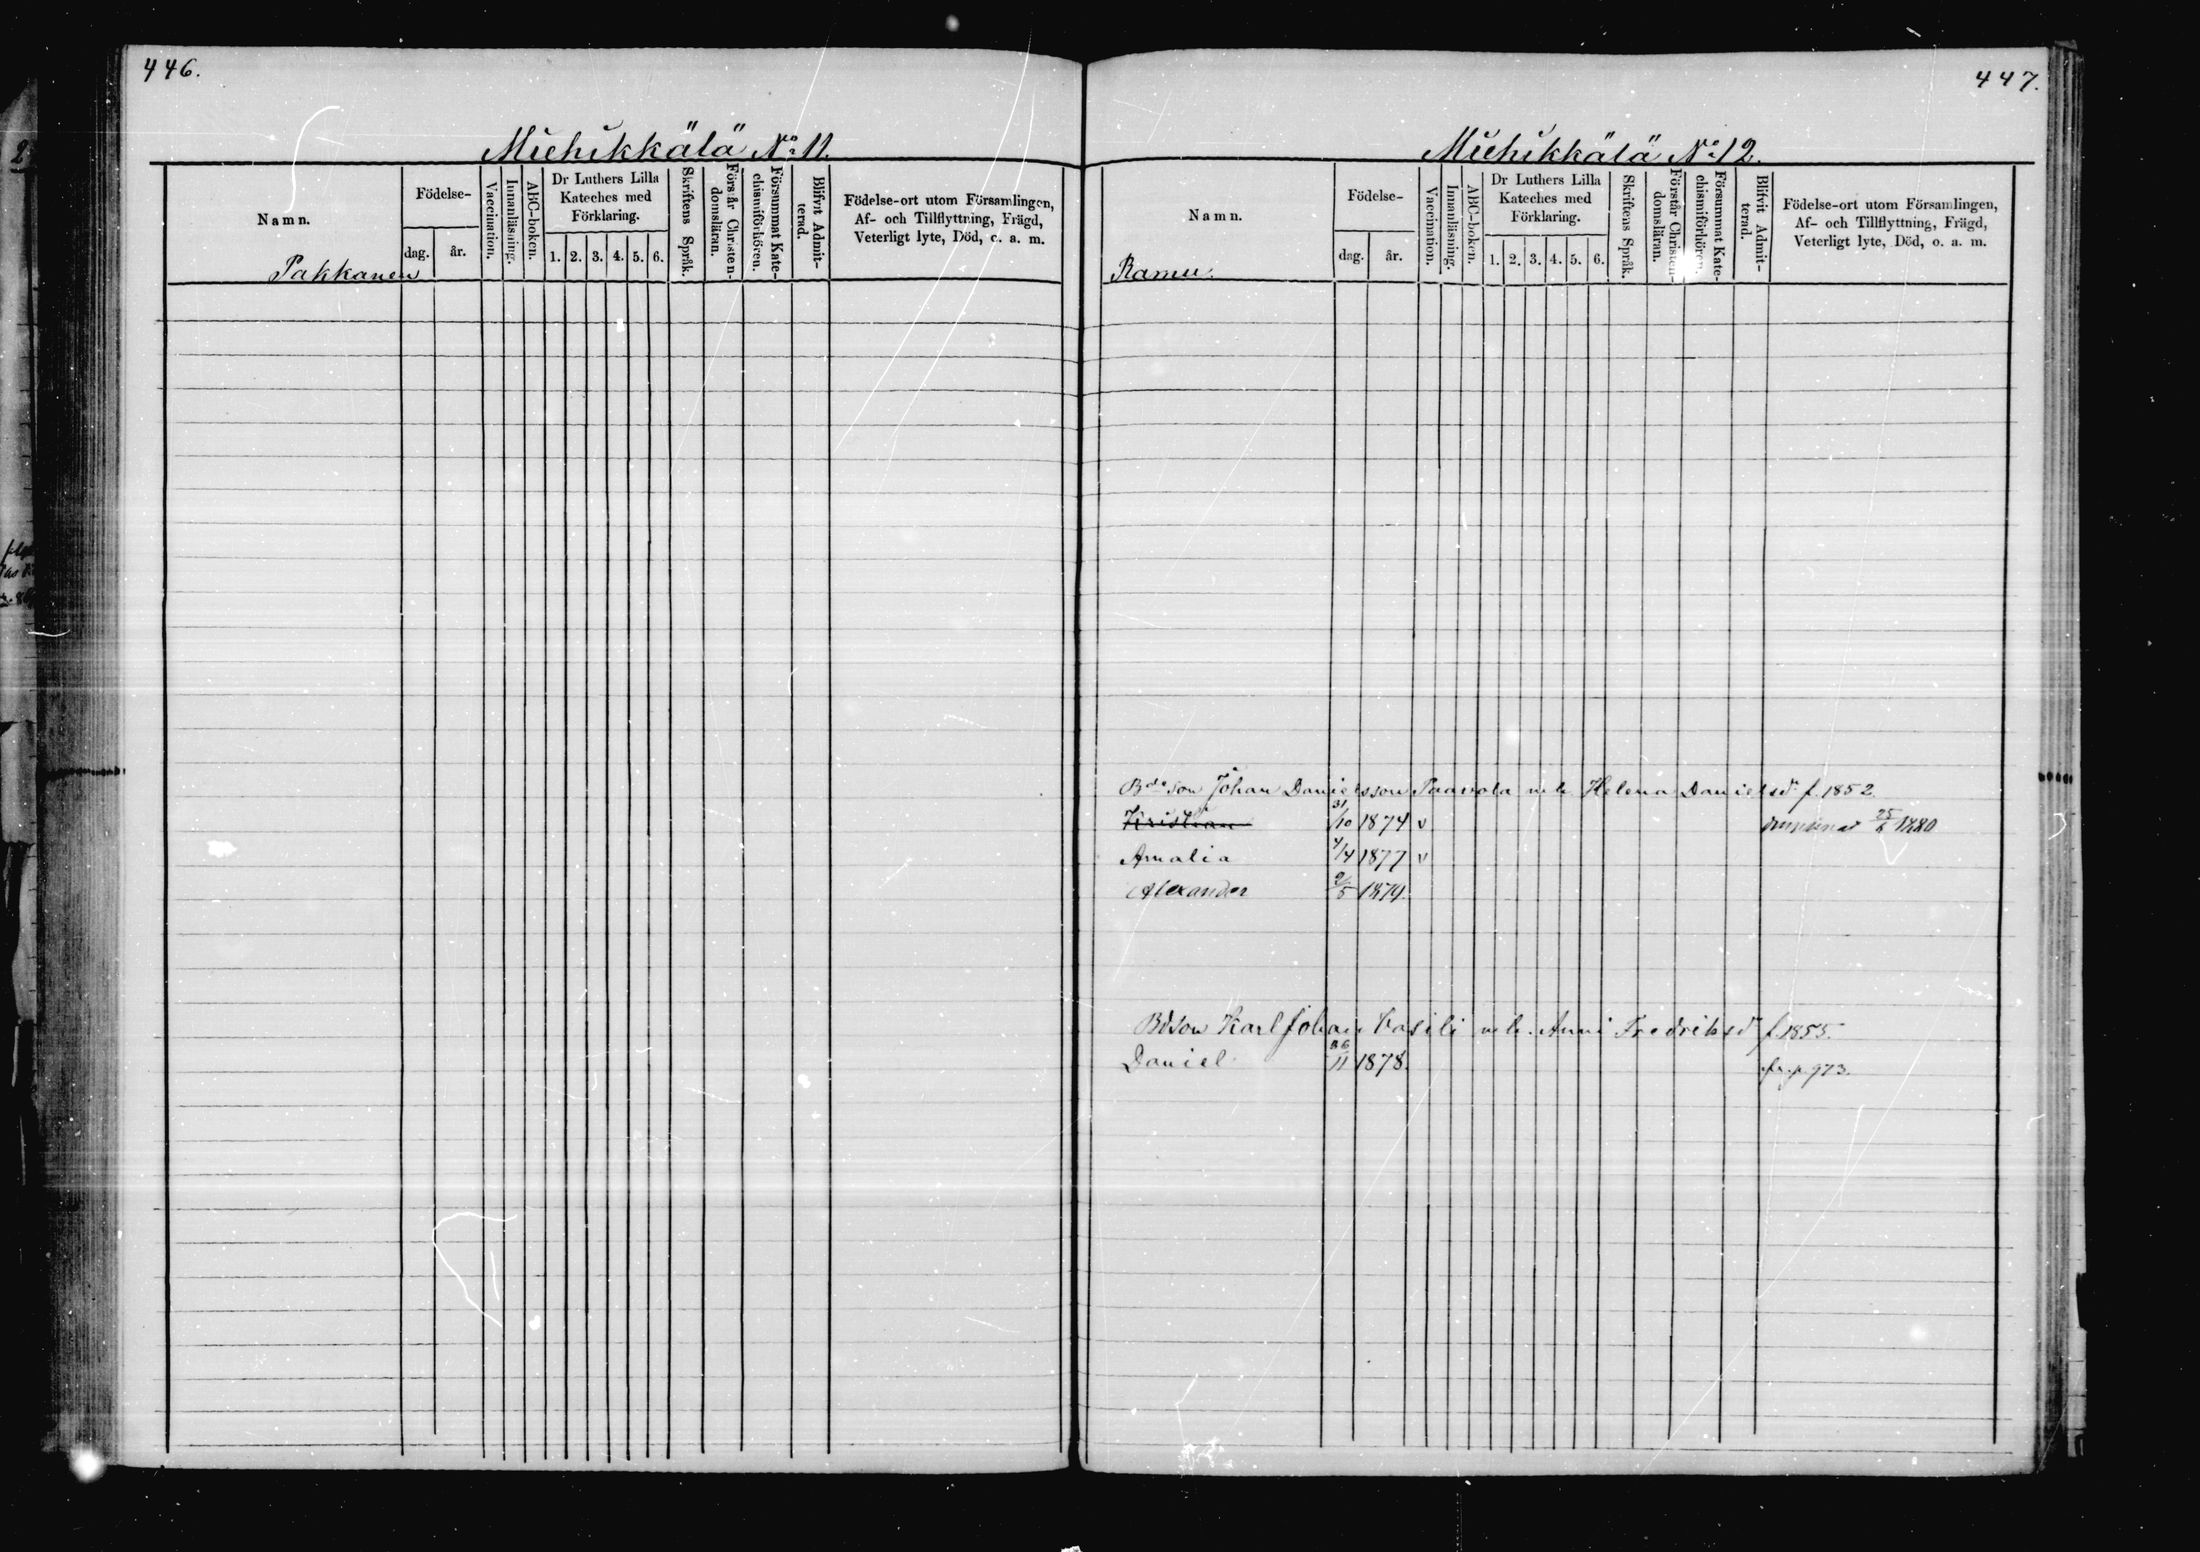 446.
Miehikkälä No 11.
Namn.
Födelse-
dag. år.
Vaccination.
Innanläsning.
ABC-boken.
Dr Luthers Lilla Kateches med Förklaring.
1. 2. 3. 4. 5. 6.
Skriftens Språk.
Förstår Christendomsläran.
Försummat Katechismiförhören.
Blifvit Admitterad.
Födelse-ort utom Församlingen,
Af- och Tillflyttning, Frägd,
Veterligt lyte, Död, o. a. m.
Pakkanen
447.
Miehikkälä No 12.
Namn.
Födelse-
dag. år.
Vaccination.
Innanläsning.
ABC-boken.
Dr Luthers Lilla Kateches med Förklaring.
1. 2. 3. 4. 5. 6.
Skriftens Språk.
Förstår Christendomsläran.
Försummat Katechismiförhören.
Blifvit Admitterad.
Födelse-ort utom Församlingen,
Af- och Tillflyttning, Frägd,
Veterligt lyte, Död, o. a. m.
Ramu.
Bde son Johan Danielsson Paavola m. h. Helena Danielsdr f. 1852
Kristian 31/10 1874 v 25/6 1880
Amalia 4/4 1877 v
Alexander 2/5 1879.
Bdson Karl Johan Vasili m. h. Anni Fredriksdr f. 1855.
Daniel 26/11 1878. fr. p. 973.